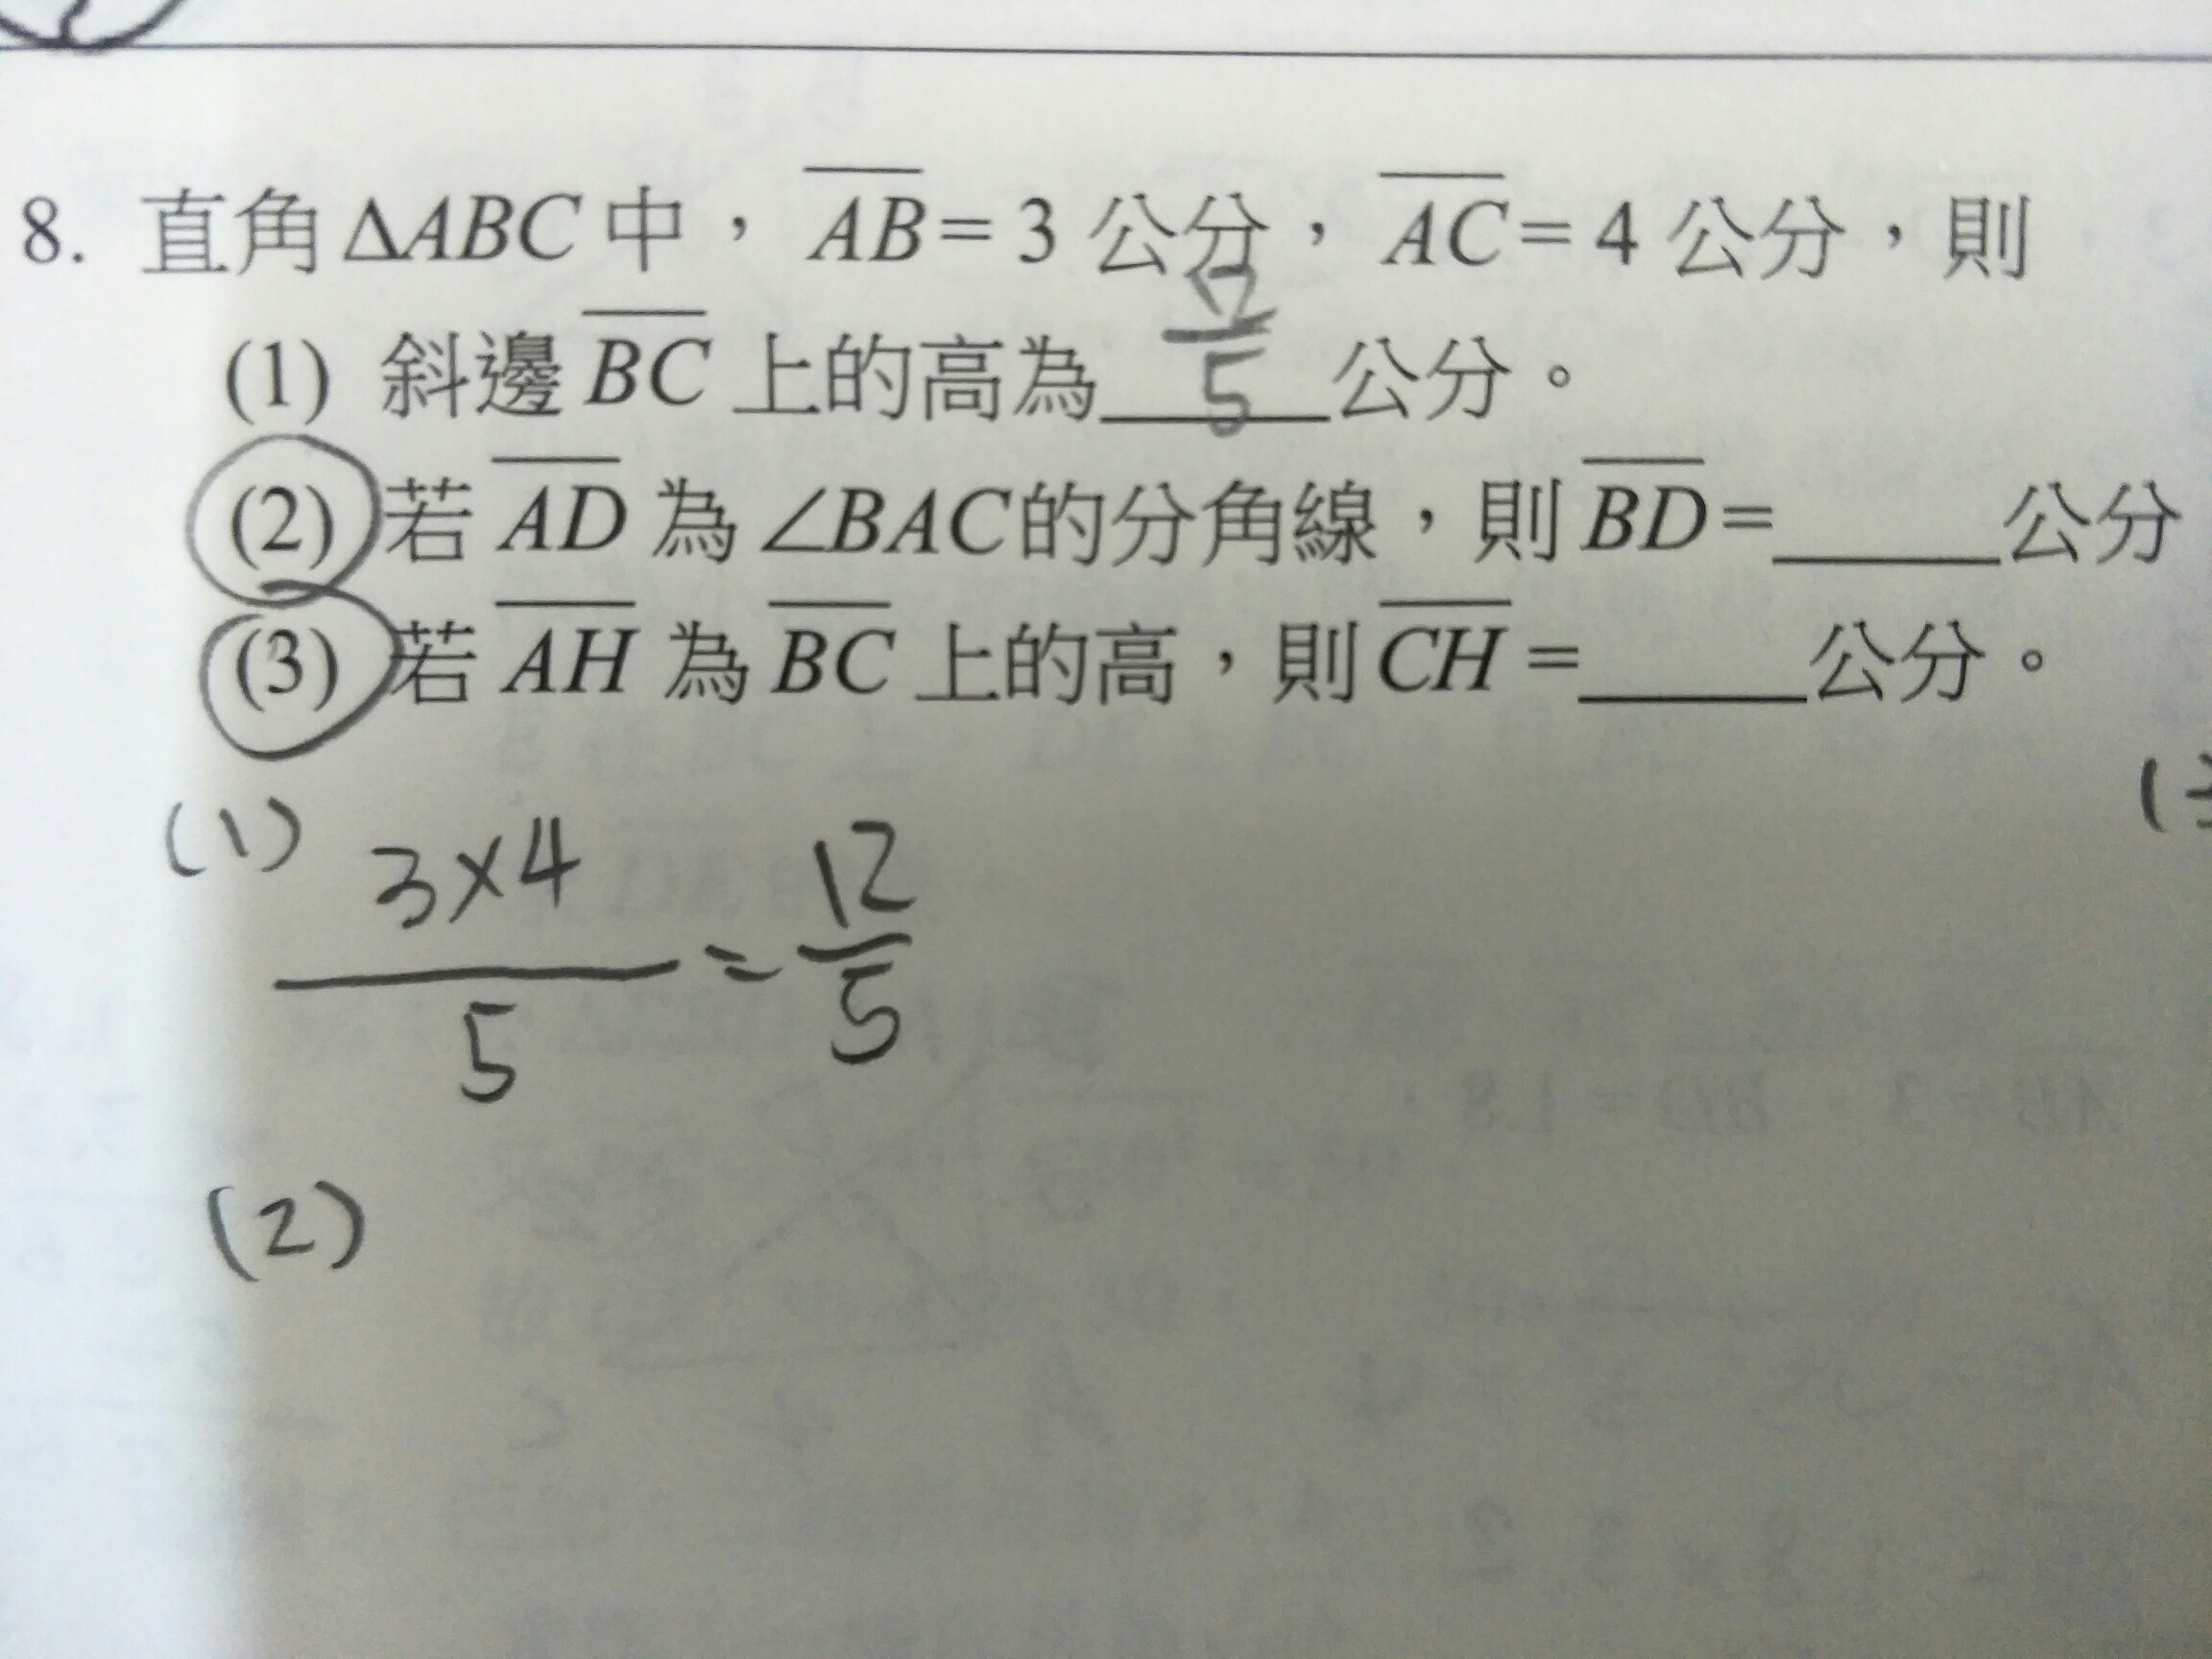 8. 直角ΔABC中，AB=3公分，AC=4公分，則
(1) 斜邊BC上的高為 12/5 公分。
(2) 若AD為∠BAC的分角線，則BD=_____公分
(3) 若AH為BC上的高，則CH=_____公分。
(1) 3×4/5=12/5
(2)